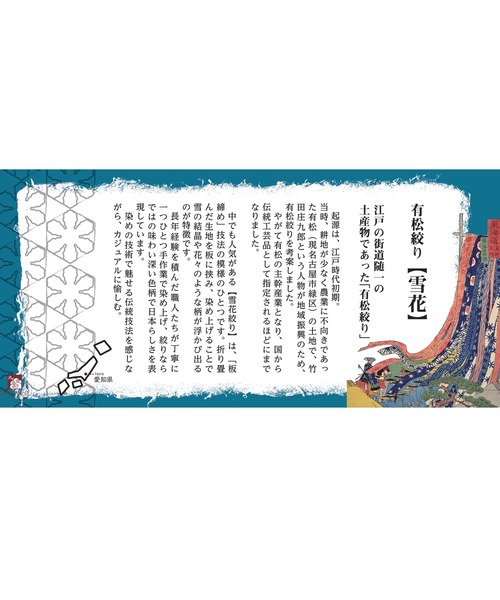 有松絞り【雪花】
江戸の街道随一の
土産物であった「有松絞り」
起源は、江戸時代初期。
当時、耕地が少なく農業に不向きであっ
た有松（現名古屋市緑区）の土地で、竹
田庄九郎という人物が地域振興のため、
有松絞りを考案しました。
やがて有松の主幹産業となり、国から
伝統工芸品として指定されるほどにまで
なりました。
中でも人気がある【雪花絞り】は、「板
締め」技法の模様のひとつです。折り畳
んだ生地を板に挟み、染め上げることで
雪の結晶や花々のような柄が浮かび出る
のが特徴です。
長年経験を積んだ職人たちが丁寧に
一つひとつ手作業で染め上げ、絞りなら
ではの味わい深い色柄で日本らしさを表
現しています。
染めの技術で魅せる伝統技法を感じな
がら、カジュアルに愉しむ。
here
愛知県